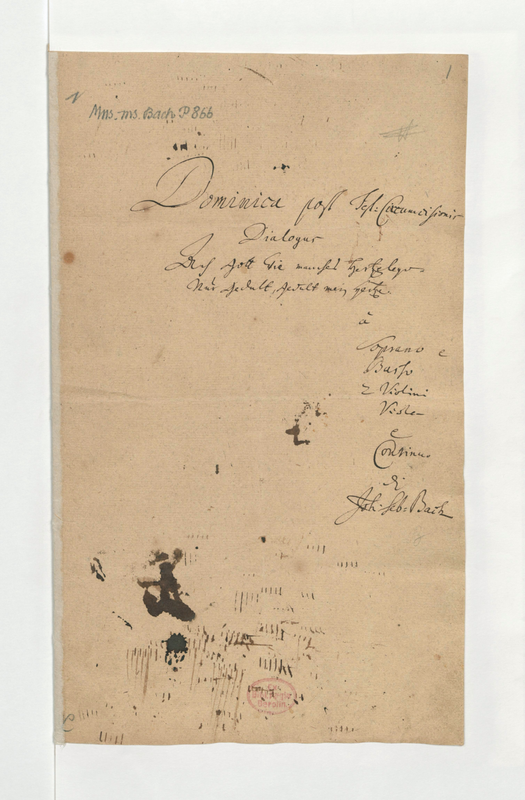 1
Mus. ms. Bach P 866
Dominica post Fest: Circumcisionis
Dialogus
Ach Gott wie manches Hertzeleyd
Nur gedult, gedult mein Hertze.
à
Soprano e
Basso
2 Violini
Viola
e
Continuo
di
Joh: Seb: Bach